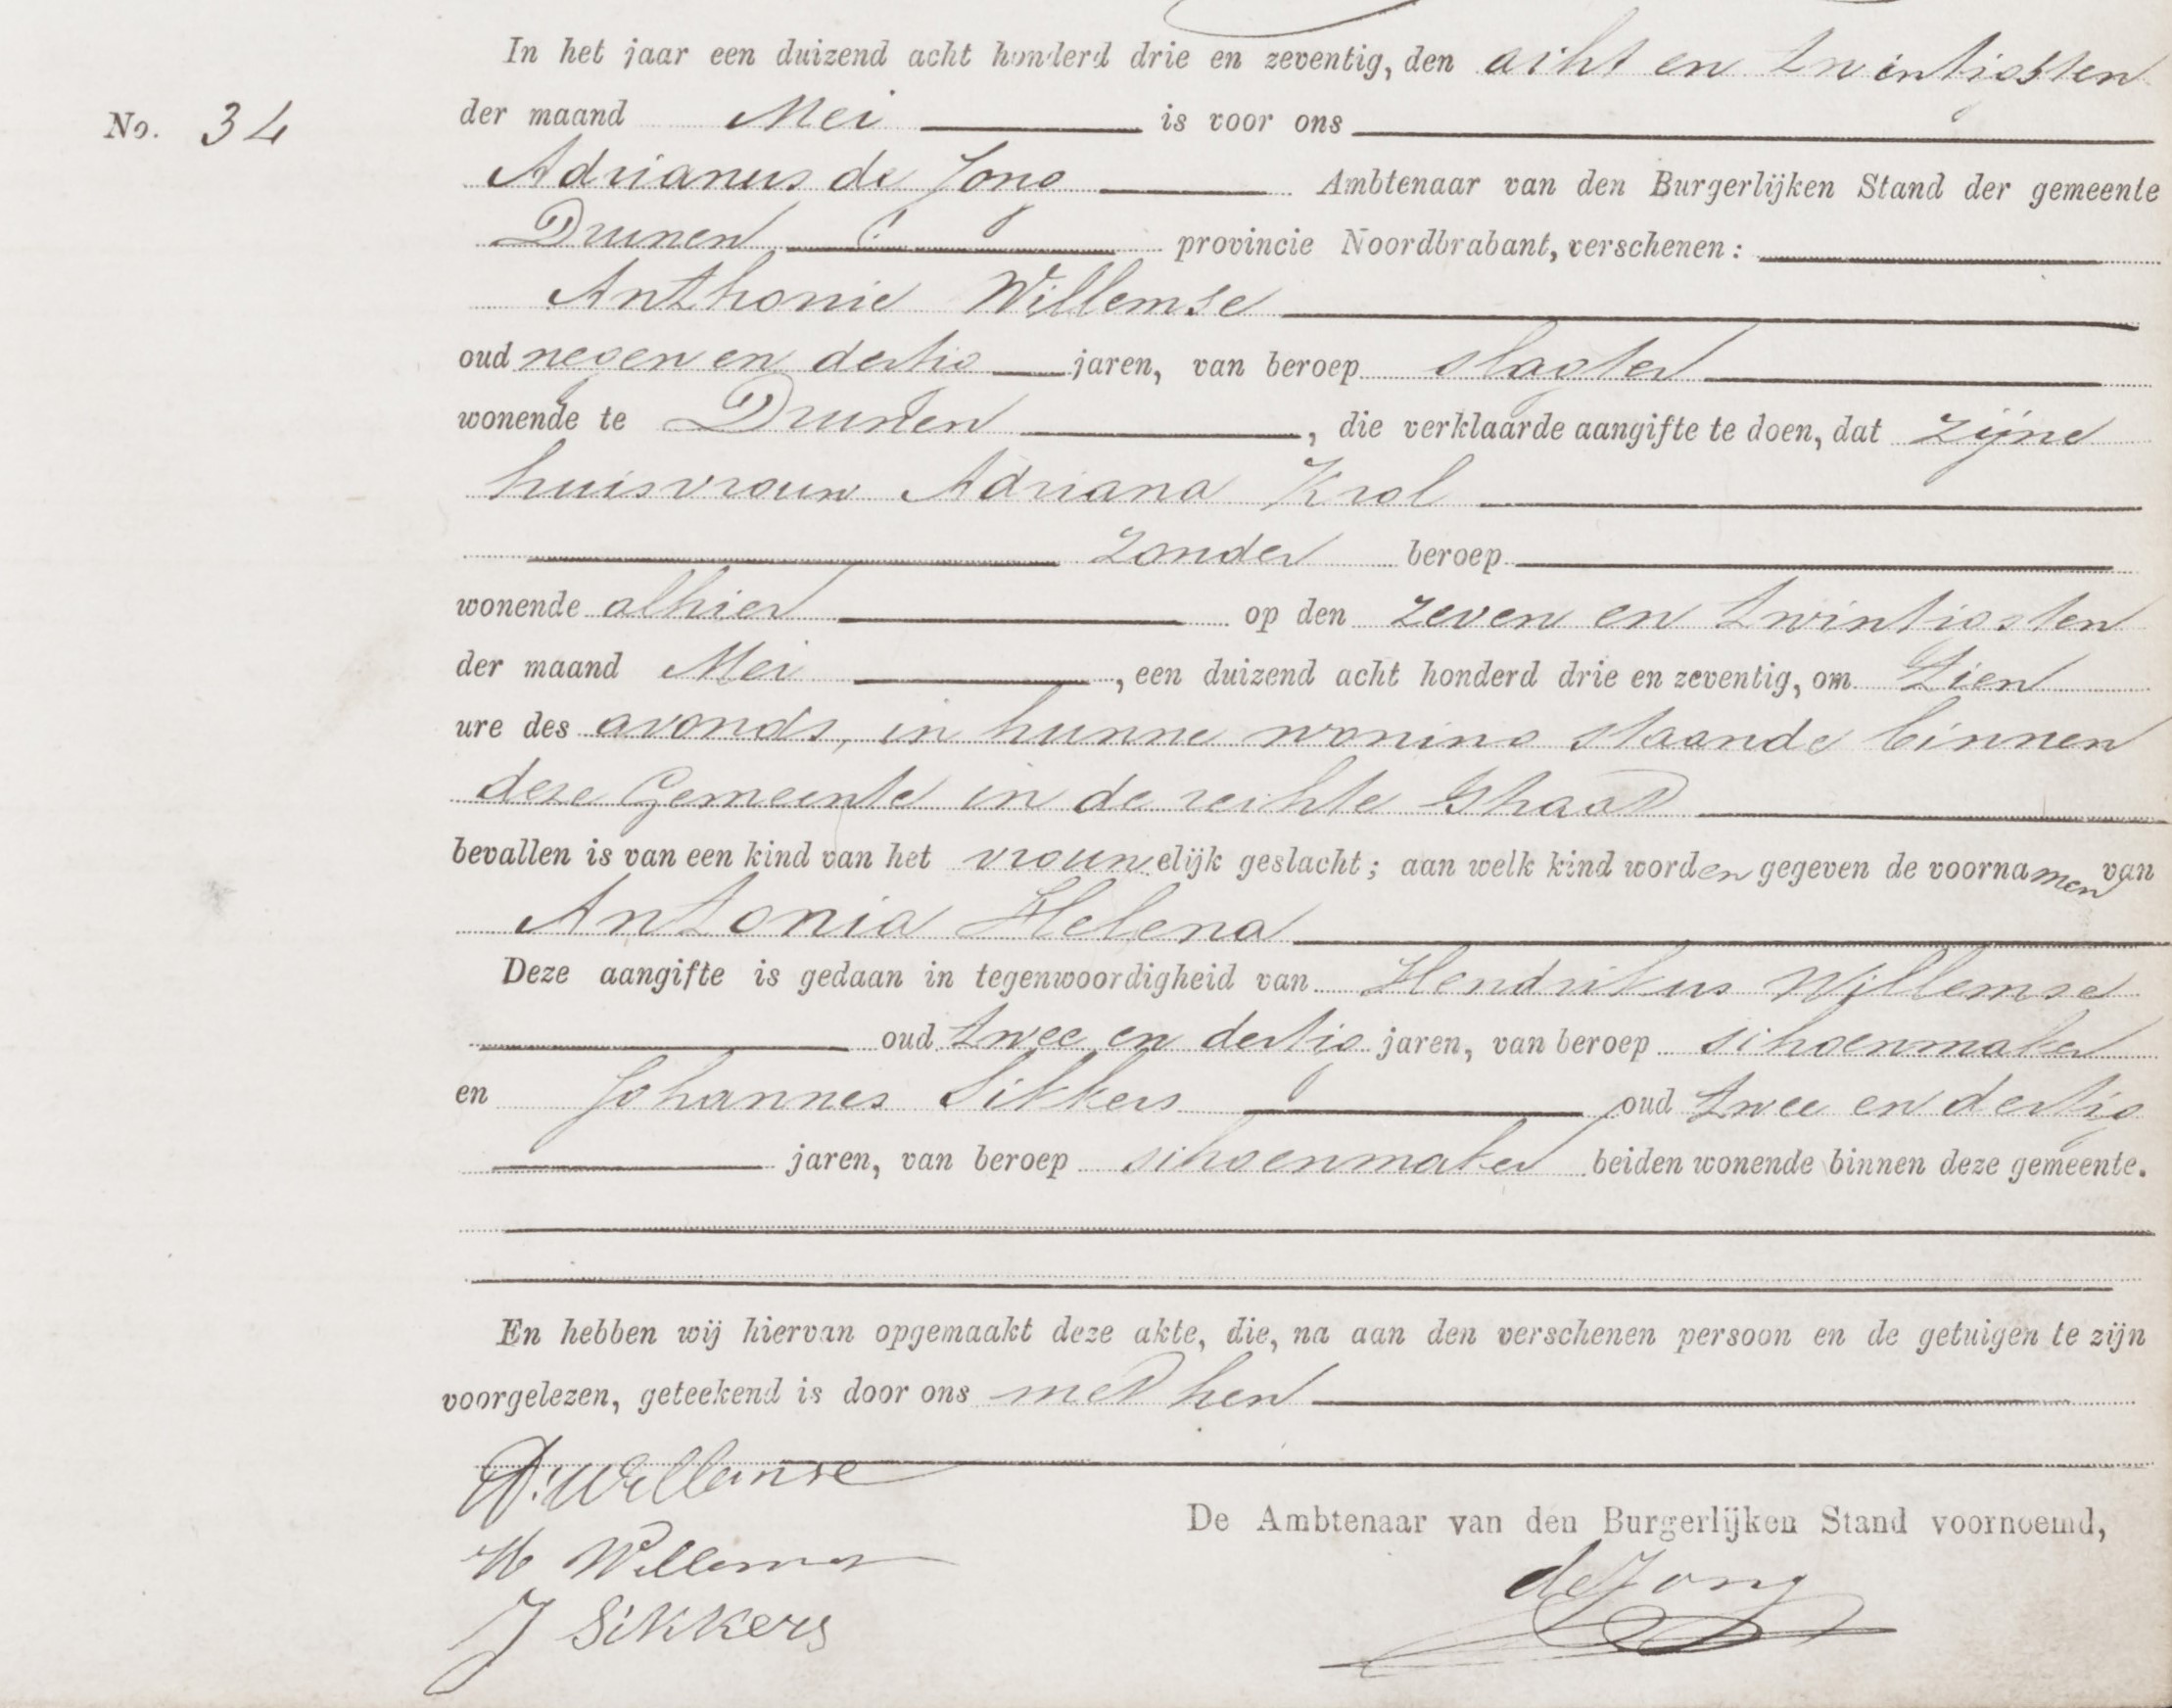 In het jaar een duizend acht honderd drie en zeventig, den acht en twintigsten
No. 34
der maand Mei is voor ons
Adrianus de Jong Ambtenaar van den Burgerlijken Stand der gemeente
Drunen provincie Noordbrabant, verschenen:
Anthonie Willemse
oud negen en dertig jaren, van beroep slagter
wonende te Drunen, die verklaarde aangifte te doen, dat zijne
huisvrouw Adriana Krol
zonder beroep
wonende alhier op den zeven en twintigsten
der maand Mei, een duizend acht honderd drie en zeventig, om tien
ure des avonds, in hunne woning staande binnen
deze Gemeente in de rechte straat
bevallen is van een kind van het vrouwelijk geslacht; aan welk kind worden gegeven de voornamen van
Antonia Helena
Deze aangifte is gedaan in tegenwoordigheid van Hendrikus Willemse
oud twee en dertig jaren, van beroep schoenmaker
en Johannes Sikkers oud twee en dertig
jaren, van beroep schoenmaker beiden wonende binnen deze gemeente.
En hebben wij hiervan opgemaakt deze akte, die, na aan den verschenen persoon en de getuigen te zijn
voorgelezen, geteekend is door ons met hen
A: Willemse
De Ambtenaar van den Burgerlijken Stand voornoemd,
H Willemse
de Jong
J Sikkers